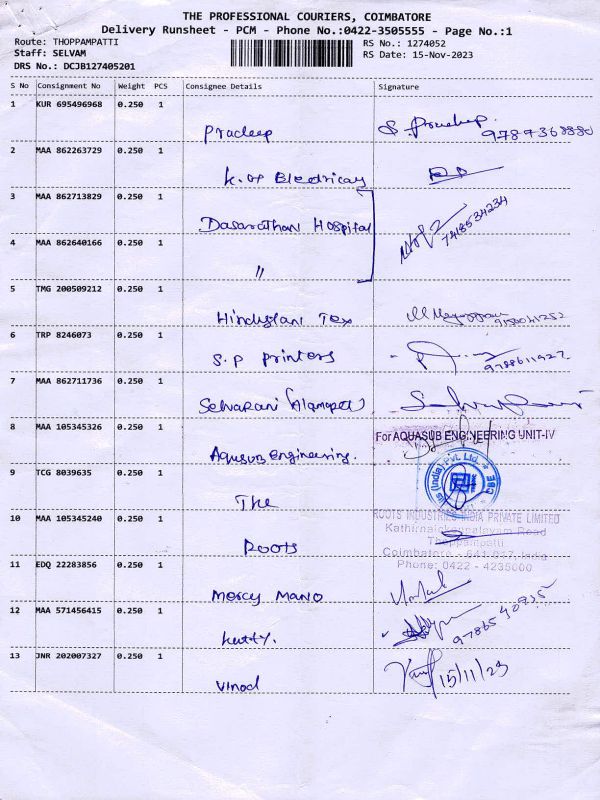 THE PROFESSIONAL COURIERS, COIMBATORE
Delivery Runsheet - PCM - Phone No.:0422-3505555 - Page No.:1
Route: THOPPAMPATTI RS No.: 1274052
Staff: SELVAM RS Date: 15-Nov-2023
DRS No.: DCJB127405201
S No Consignment No Weight PCS Consignee Details Signature
1 KUR 695496968 0.250 1
Pradeep S. Pradeep
2 MAA 862263729 0.250 1
K.
3 MAA 862713829 0.250 1
Dasarathan Hospital 7418534234
4 MAA 862640166 0.250 1
"
5 TMG 200509212 0.250 1
Hindustani Tex
6 TRP 8246073 0.250 1
S.P printers
7 MAA 862711736 0.250 1
Selvarani
8 MAA 105345326 0.250 1
For AQUASUB ENGINEERING UNIT-IV
Aquasub Engineering.
9 TCG 8039635 0.250 1
(India) Pvt. Ltd. CBE
The
10 MAA 105345240 0.250 1
ROOTS INDUSTRIES INDIA PRIVATE LIMITED
Kathirnaickenpalayam Road
Thoppampatti
Roots
Coimbatore - 641 017, India
Phone: 0422 - 4235000
11 EDQ 22283856 0.250 1
Mercy Mano
12 MAA 571456415 0.250 1
Kutty.
13 JNR 202007327 0.250 1
Vinod 15/11/23